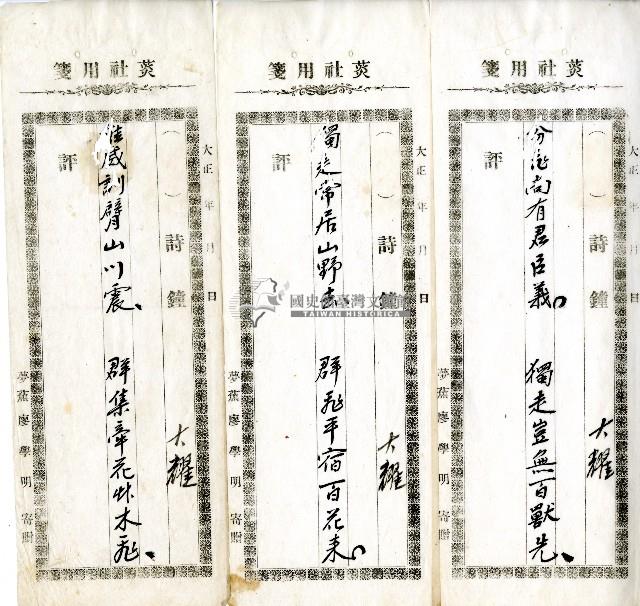 菼社用箋
大正 年 月 日
( ) 詩鐘
大耀
分派尚有君臣義
獨走豈無百獸先
評
夢蕉廖學明寄贈
菼社用箋
大正 年 月 日
( ) 詩鐘
大耀
獨走常居山野去
群飛平宿百花来
評
夢蕉廖學明寄贈
菼社用箋
大正 年 月 日
( ) 詩鐘
大耀
威訓臂山川震
群集牽花草木飛
評
夢蕉廖學明寄贈
國史館臺灣文獻館
TAIWAN HISTORICA